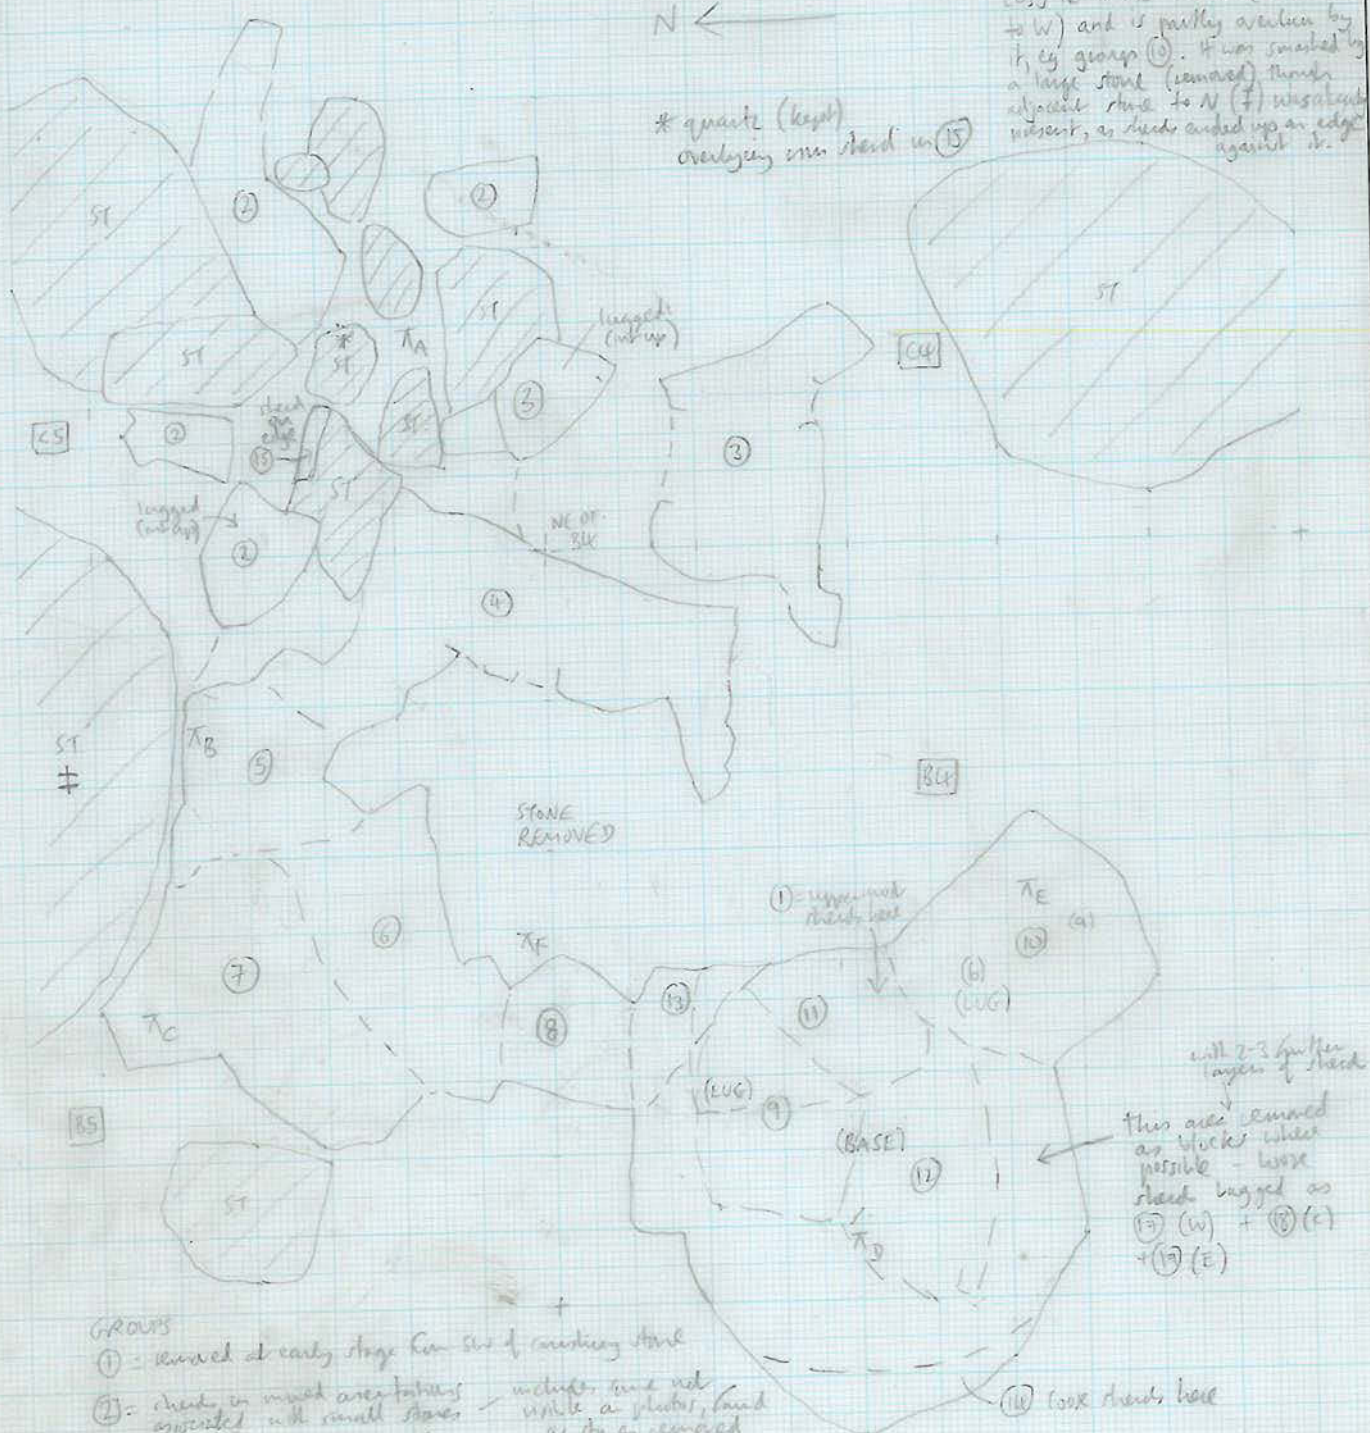 N
to W) and is partly overlain by
it, eg groups ⑩. It was smashed by
a large stone (removed) though
adjacent stone to N (‡) was already
present, as sherds ended up on edge
against it.
* quartz (kept)
overlying sherd in ⑮
ST
②
②
ST
lugged
(int up)
ST
*
ST
πA
③
C4
ST
C5
②
sherd
on
edge
⑮
ST
ST
③
lugged
(int up)
②
NE OF
B4
④
ST
‡
πB
⑤
B4
STONE
REMOVED
① = uppermost
sherds here
πE
⑩
(9)
(6)
(LUG)
⑥
⑦
πF
⑬
⑪
⑧
πC
(LUG)
⑨
(BASE)
⑫
πD
B5
ST
with 2-3 further
layers of sherd
this area removed
as blocks where
possible - loose
sherd bagged as
⑰ (W) + ⑱ (C)
+ ⑲ (E)
GROUPS
① = removed at early stage from of crushing stone
② = sherds in mixed orientations
associated with small stones - includes some not
visible on photos, found
as removed
⑭ loose sherds here